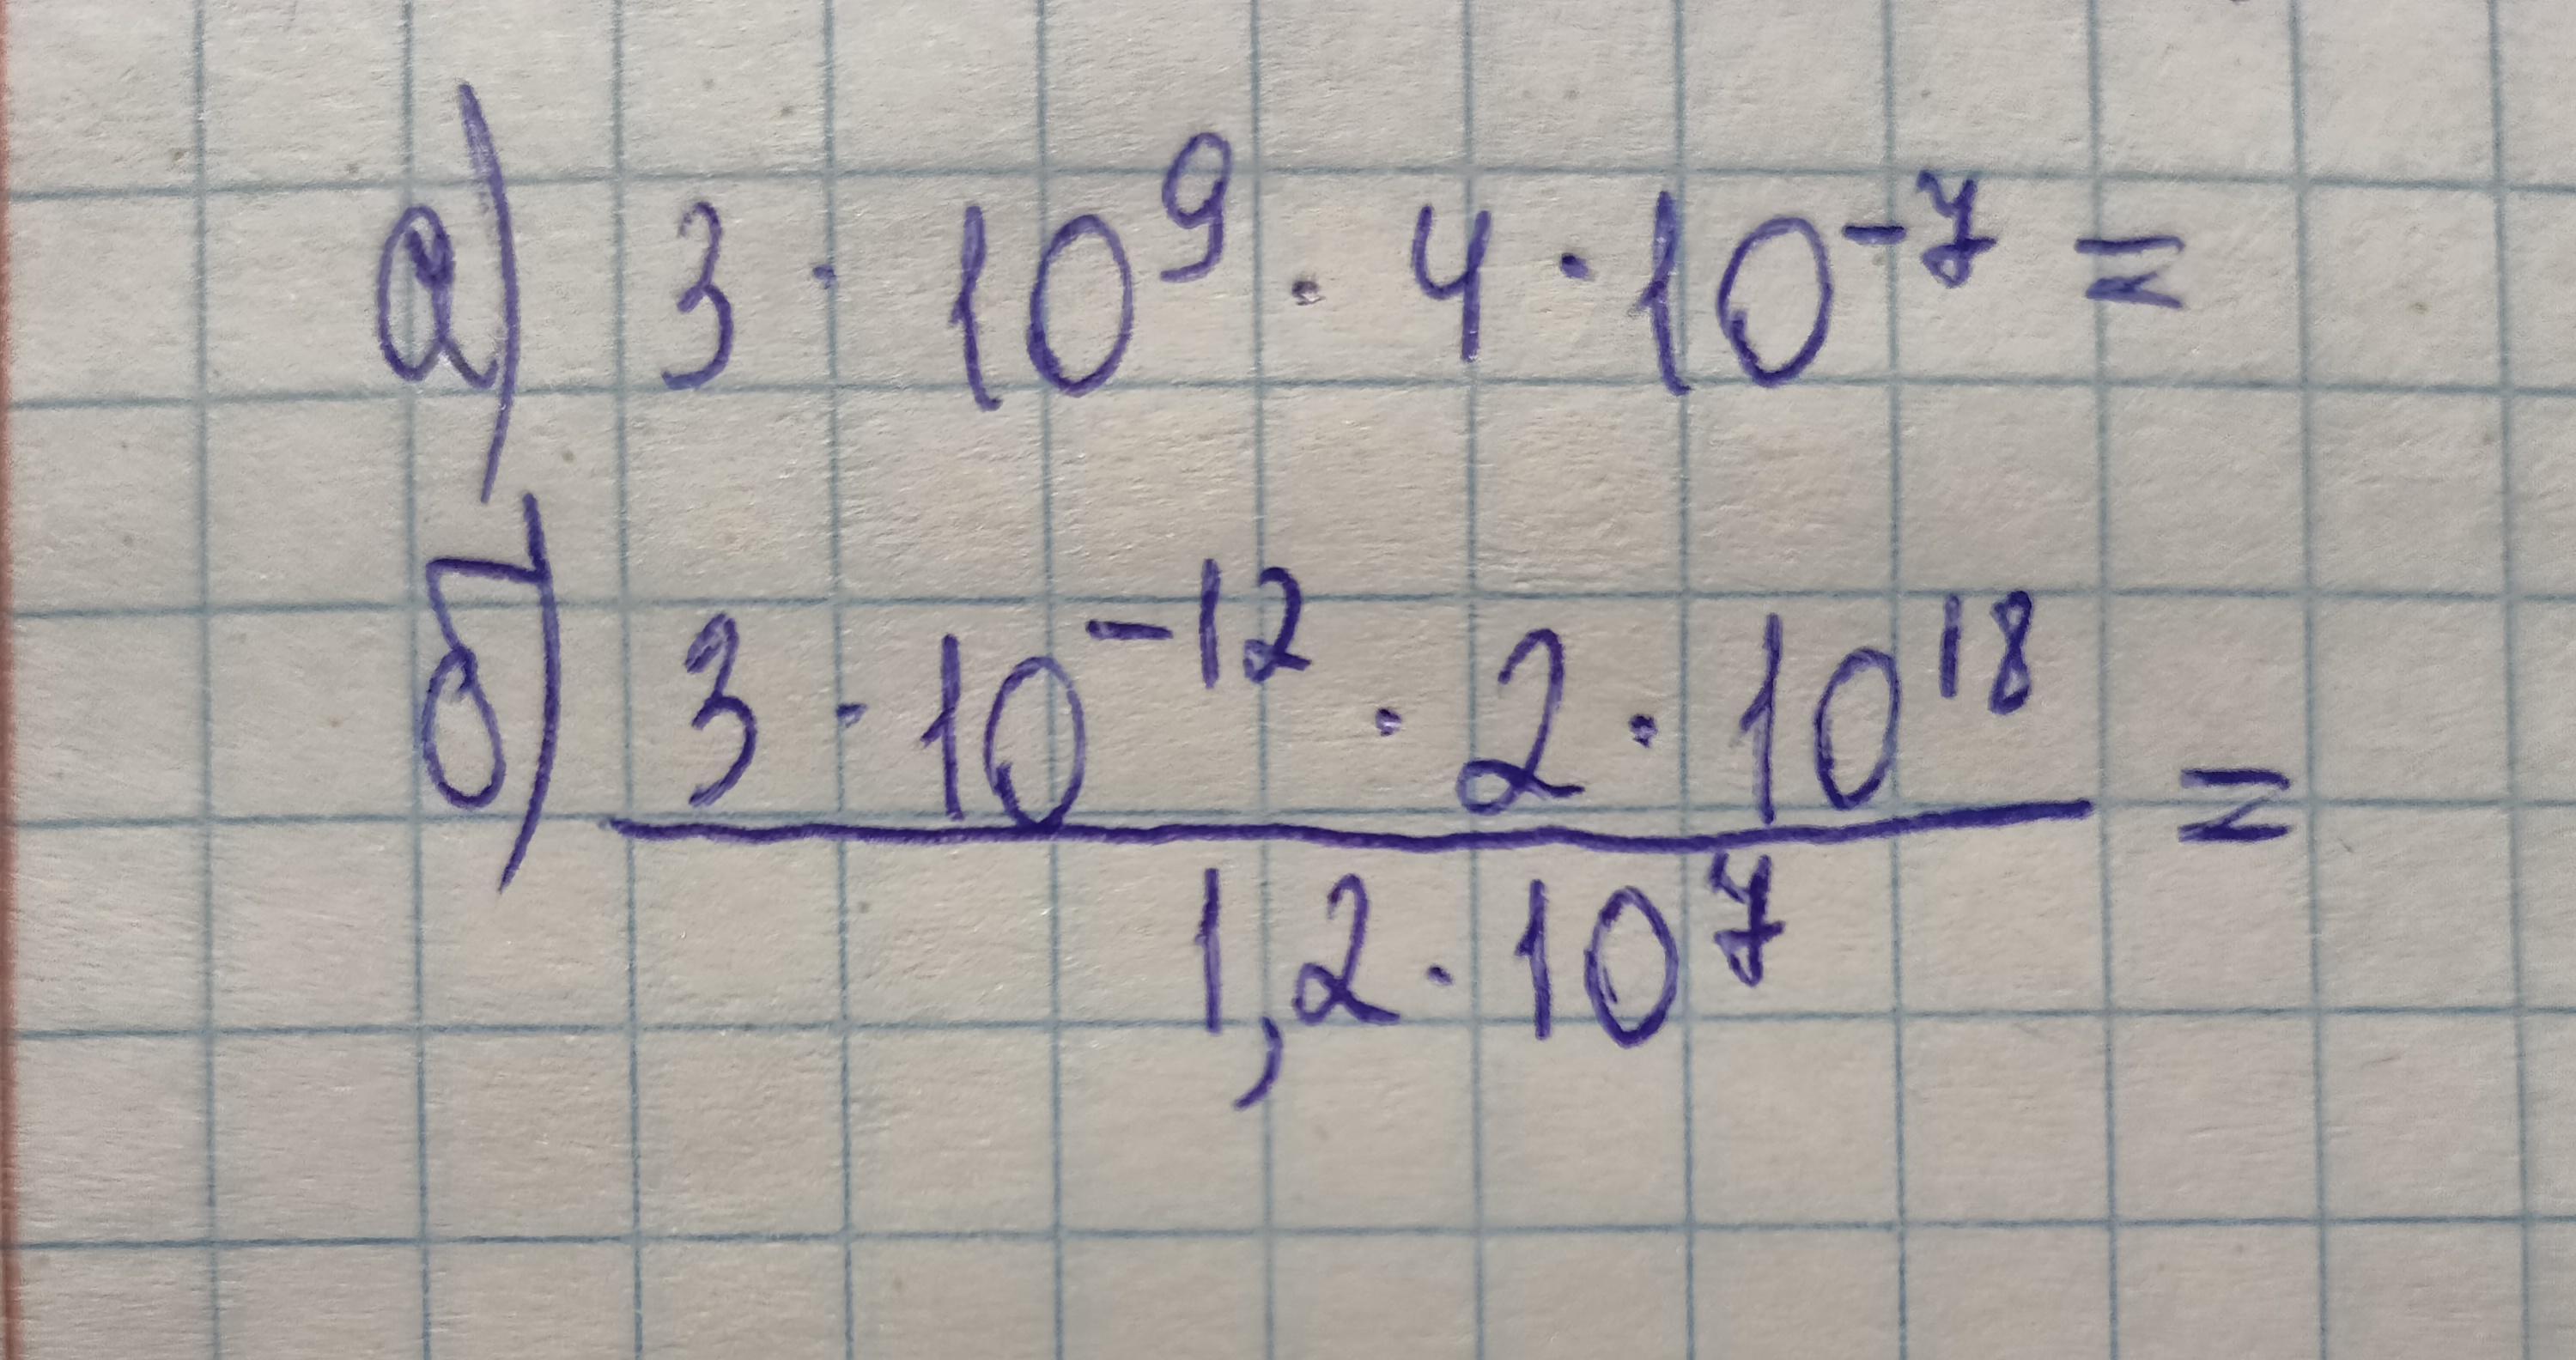 а) 3 · 10⁹ · 4 · 10⁻⁷ =
б) 3 · 10⁻¹² · 2 · 10¹⁸ =
1,2 · 10⁷